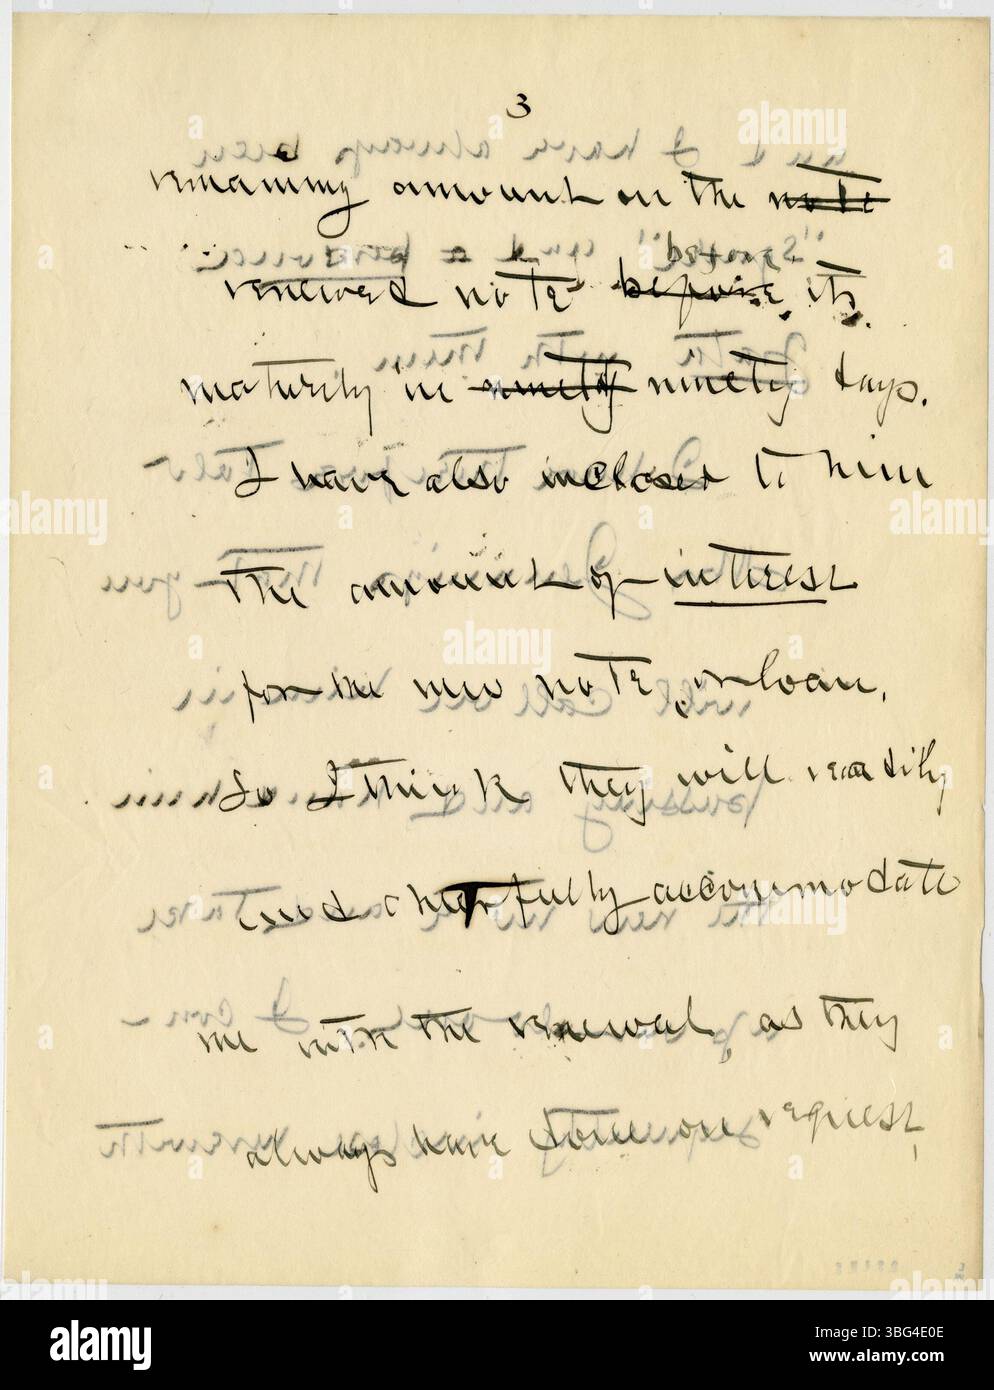 3
remaining amount on the note
renewed note before its
maturity in ninety ninety days.
I have also inclosed to him
the amount of interest
for the new note, or loan,
So I think they will readily
and cheerfully accommodate
me with the renewal, as they
always have done on request,
alamy
Image ID: 3BG4E0E
www.alamy.com